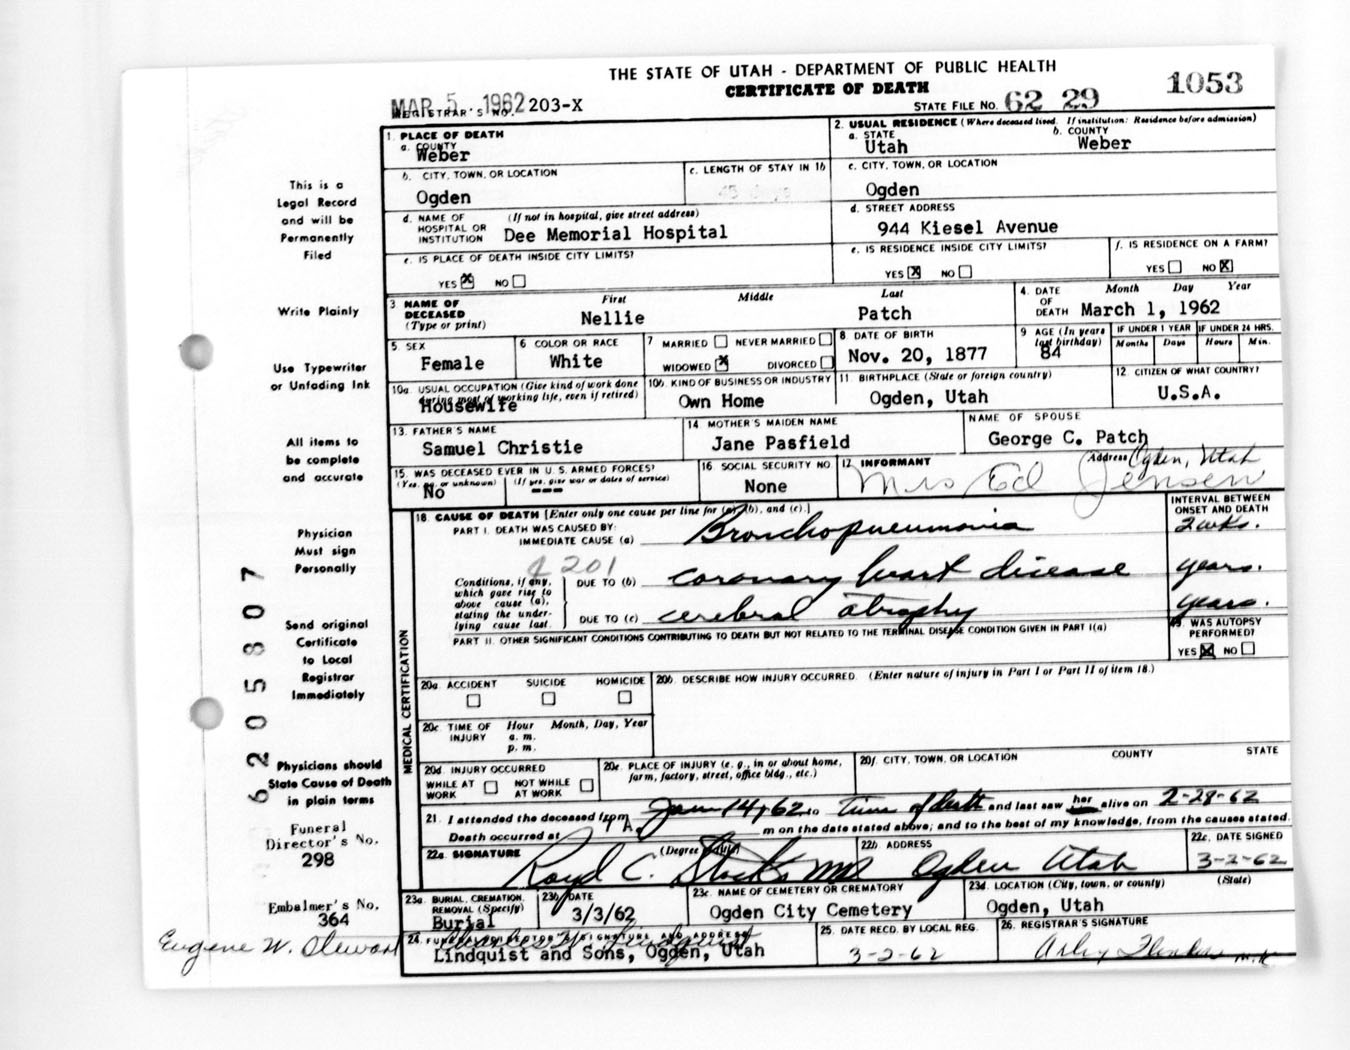 THE STATE OF UTAH - DEPARTMENT OF PUBLIC HEALTH
CERTIFICATE OF DEATH
1053
MAR 5 . 1962
REGISTRAR'S NO. 203-X
STATE FILE NO. 62 29
1. PLACE OF DEATH
a. COUNTY
Weber
2. USUAL RESIDENCE (Where deceased lived. If institution: Residence before admission)
a. STATE
Utah
b. COUNTY
Weber
b. CITY, TOWN, OR LOCATION
Ogden
c. LENGTH OF STAY IN 1b
c. CITY, TOWN, OR LOCATION
Ogden
d. NAME OF HOSPITAL OR INSTITUTION
(If not in hospital, give street address)
Dee Memorial Hospital
d. STREET ADDRESS
944 Kiesel Avenue
e. IS PLACE OF DEATH INSIDE CITY LIMITS?
YES X NO
e. IS RESIDENCE INSIDE CITY LIMITS?
YES X NO
f. IS RESIDENCE ON A FARM?
YES NO X
3. NAME OF DECEASED
(Type or print)
First Middle Last
Nellie Patch
4. DATE OF DEATH
Month Day Year
March 1, 1962
5. SEX
Female
6 COLOR OR RACE
White
7 MARRIED NEVER MARRIED
WIDOWED X DIVORCED
8 DATE OF BIRTH
Nov. 20, 1877
9 AGE (In years last birthday)
84
IF UNDER 1 YEAR
Months Days
IF UNDER 24 HRS.
Hours Min.
10a. USUAL OCCUPATION (Give kind of work done during most of working life, even if retired)
Housewife
10b. KIND OF BUSINESS OR INDUSTRY
Own Home
11. BIRTHPLACE (State or foreign country)
Ogden, Utah
12 CITIZEN OF WHAT COUNTRY?
U.S.A.
13. FATHER'S NAME
Samuel Christie
14. MOTHER'S MAIDEN NAME
Jane Pasfield
NAME OF SPOUSE
George C. Patch
15. WAS DECEASED EVER IN U.S. ARMED FORCES?
(Yes, no, or unknown) (If yes, give war or dates of service)
No ---
16. SOCIAL SECURITY NO.
None
17. INFORMANT
Mrs Ed Jensen
Address Ogden, Utah
MEDICAL CERTIFICATION
18. CAUSE OF DEATH [Enter only one cause per line for (a), (b), and (c).]
INTERVAL BETWEEN ONSET AND DEATH
PART I. DEATH WAS CAUSED BY:
IMMEDIATE CAUSE (a) Bronchopneumonia 2 wks.
4201
Conditions, if any, which gave rise to above cause (a), stating the underlying cause last.
DUE TO (b) coronary heart disease years.
DUE TO (c) cerebral atrophy years.
PART II. OTHER SIGNIFICANT CONDITIONS CONTRIBUTING TO DEATH BUT NOT RELATED TO THE TERMINAL DISEASE CONDITION GIVEN IN PART I(a)
19. WAS AUTOPSY PERFORMED?
YES X NO
20a. ACCIDENT SUICIDE HOMICIDE
20b. DESCRIBE HOW INJURY OCCURRED. (Enter nature of injury in Part I or Part II of item 18.)
20c. TIME OF INJURY
Hour Month, Day, Year
a. m.
p. m.
20d. INJURY OCCURRED
WHILE AT WORK NOT WHILE AT WORK
20e. PLACE OF INJURY (e. g., in or about home, farm, factory, street, office bldg., etc.)
20f. CITY, TOWN, OR LOCATION COUNTY STATE
21. I attended the deceased from Jan 14, 62 to time of death and last saw her alive on 2-28-62
Death occurred at A. m on the date stated above; and to the best of my knowledge, from the causes stated.
22a. SIGNATURE (Degree or title)
22b. ADDRESS
Ogden Utah
22c. DATE SIGNED
3-2-62
23a. BURIAL, CREMATION, REMOVAL (Specify)
Burial
23b. DATE
3/3/62
23c. NAME OF CEMETERY OR CREMATORY
Ogden City Cemetery
23d. LOCATION (City, town, or county) (State)
Ogden, Utah
24. FUNERAL DIRECTOR'S SIGNATURE AND ADDRESS
Lindquist and Sons, Ogden, Utah
25. DATE RECD. BY LOCAL REG.
3-2-62
26. REGISTRAR'S SIGNATURE
This is a
Legal Record
and will be
Permanently
Filed
Write Plainly
Use Typewriter
or Unfading Ink
All items to
be complete
and accurate
Physician
Must sign
Personally
Send original
Certificate
to Local
Registrar
Immediately
Physicians should
State Cause of Death
in plain terms
Funeral
Director's No.
298
Embalmer's No.
364
Eugene W.
6205807